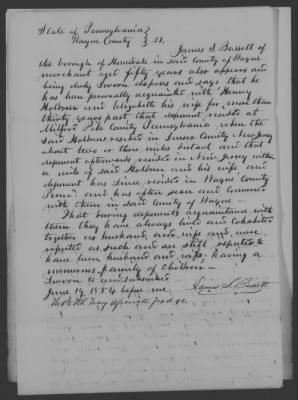 State of Pennsylvania }
Wayne County } SS.
James S. Bassett of
the borough of Honesdale in said County of Wayne
merchant aged fifty years also appears and
being duly Sworn deposes and says that he
has been personally acquainted with Henry
Holdren and Elizabeth his wife for more than
thirty years past that deponent resided at
Milford Pike County Pennsylvania when the
said Holdrens resided in Sussex County New Jersey
about two or three miles distant and that
deponent afterwards resided in New Jersey within
a mile of said Holdren and his wife and
deponent has since resided in Wayne County
Penn and has often seen and conversed
with them in said County of Wayne –
That during deponents acquaintance with
them they have always lived and cohabited
together as husband and wife and were
reputed as such and are still reputed to
have been husband and wife having a
numerous family of children –
Sworn to and subscribed
June 19, 1854 before me James S. Bassett
Tho. H. R. Tracy associate judge